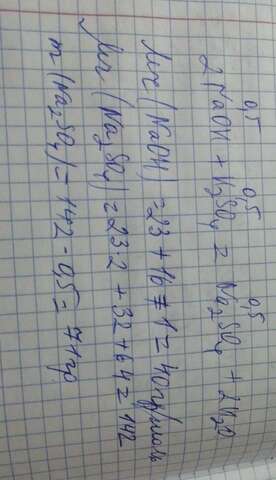 0,5 0,5 0,5
2 NaOH + H₂SO₄ = Na₂SO₄ + 2H₂O
Mr (NaOH) = 23 + 16 + 1 = 40гр/моль
Mr (Na₂SO₄) = 23·2 + 32 + 64 = 142
m (Na₂SO₄) = 142 · 0,5 = 71гр